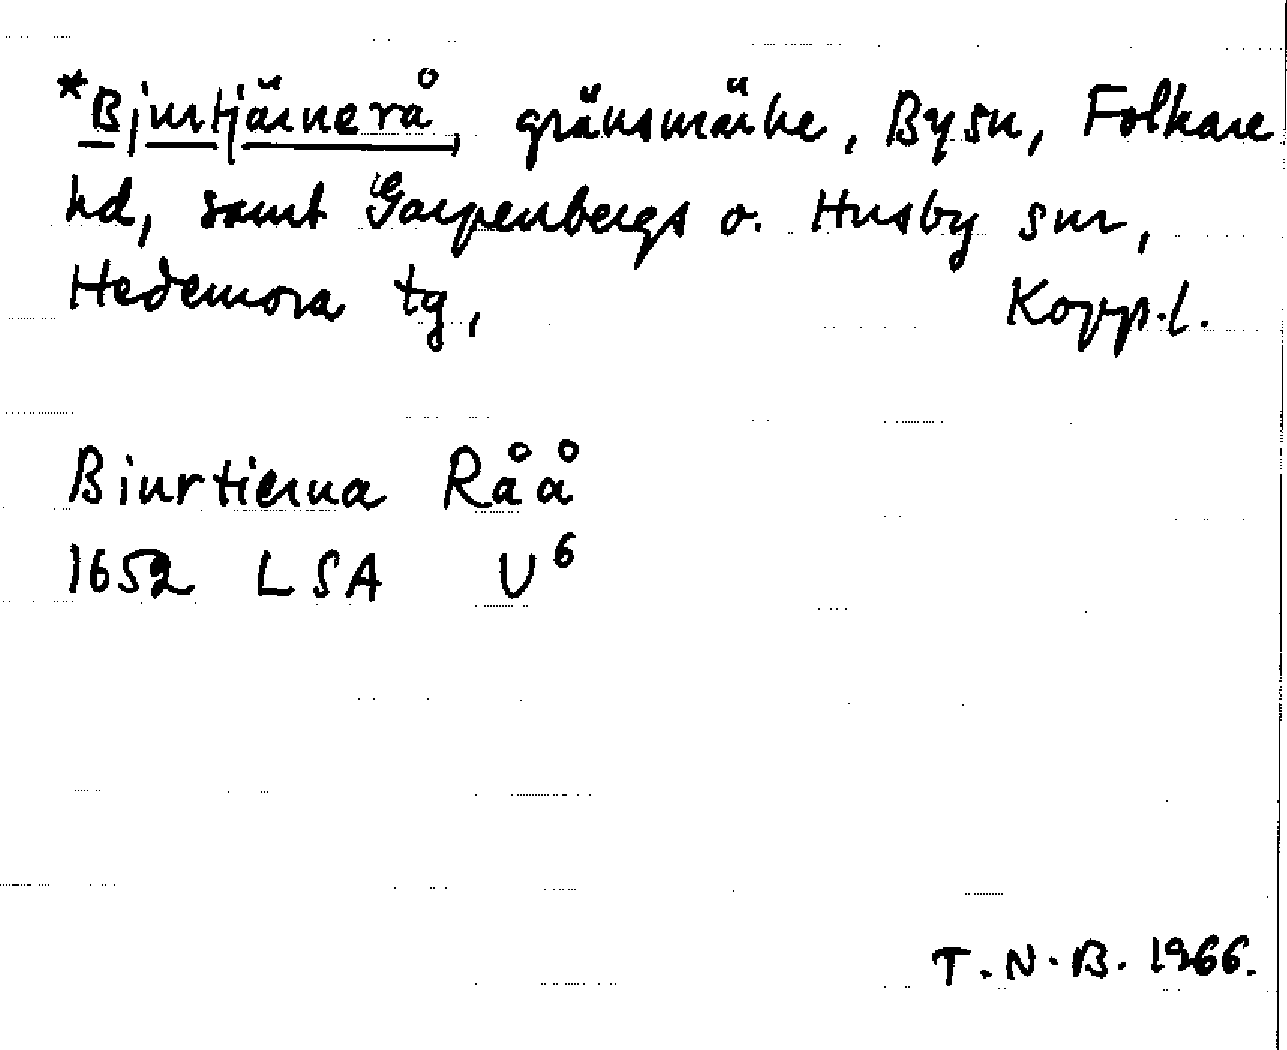 *Bjurtjärnerå, gränsmärke, By sn, Folkare
hd, samt Garpenbergs o. Husby snr,
Hedemora tg, Kopp.l.
Biurtierna Råå
1652 LSA U⁶
T.N.B. 1966.